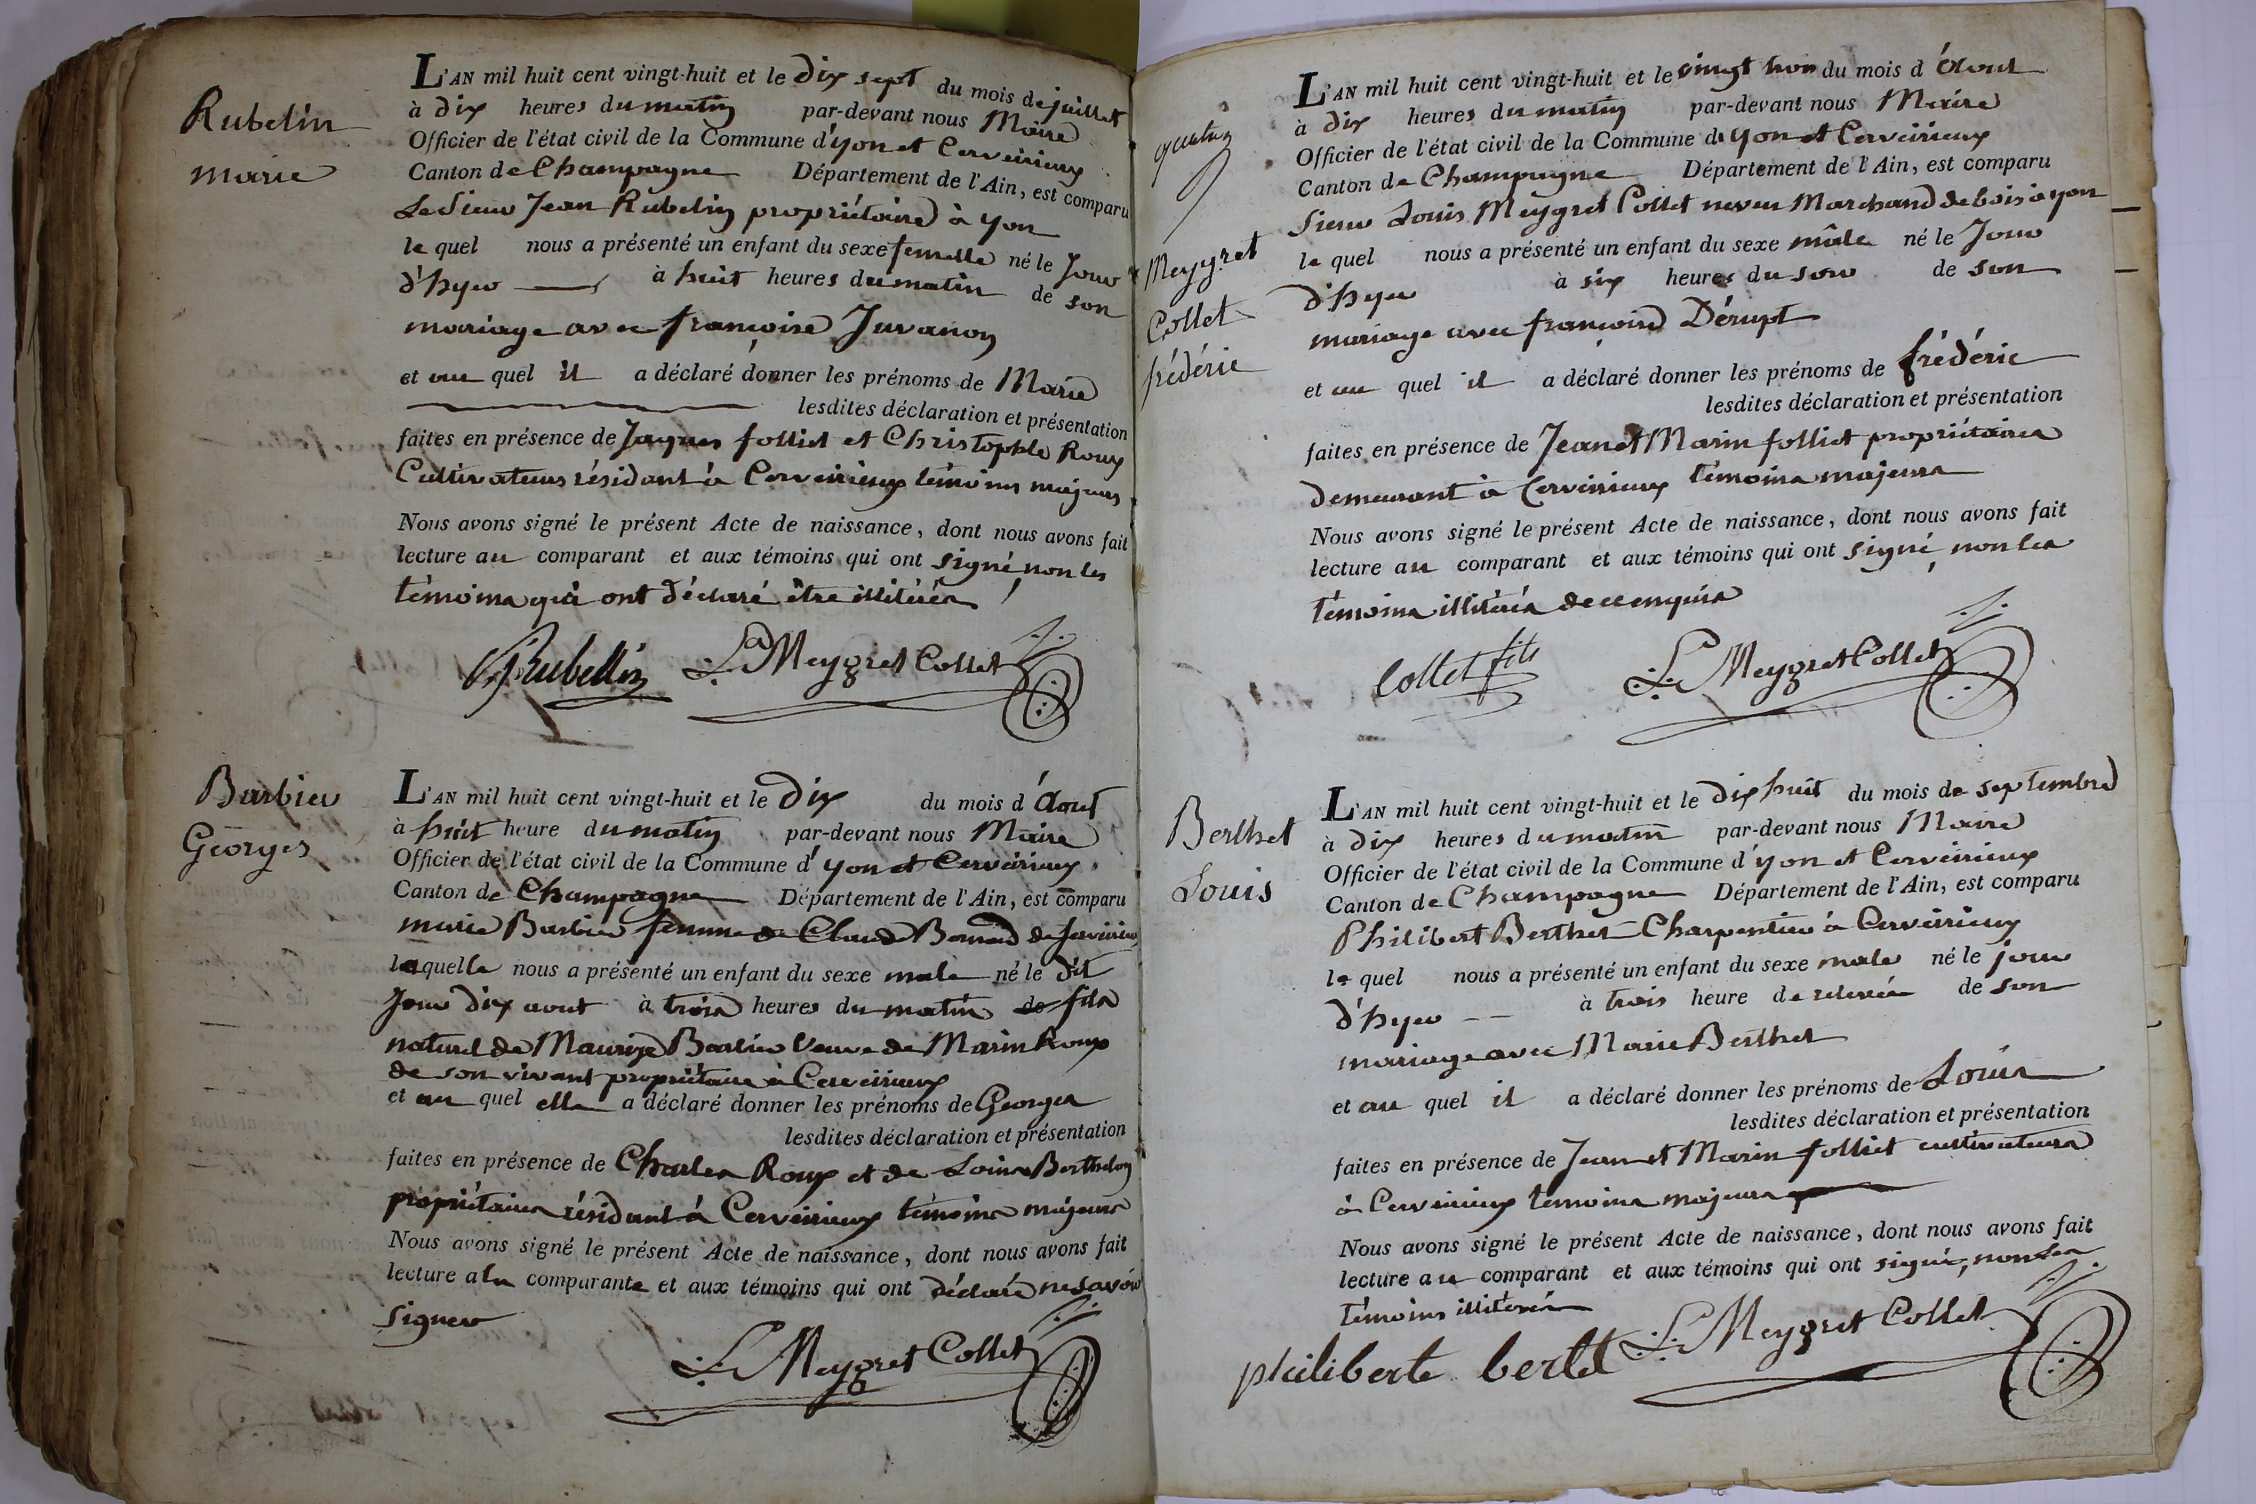 Rubelin
marie
L'AN mil huit cent vingt-huit et le dix sept du mois de juillet
à dix heures du matin par-devant nous Maire
Officier de l'état civil de la Commune d'yon et Cerveirieux
Canton de Champagne Département de l'Ain, est comparu
Le Sieur Jean Rubelin propriétaire à yon
le quel nous a présenté un enfant du sexe femelle né le Jour
d'hyer à huit heures du matin de son
mariage avec françoise Juvanon
et au quel il a déclaré donner les prénoms de Marie
lesdites déclaration et présentation
faites en présence de Jaques folliet et Christophle Roux
Cultivateurs résidant à Cerveirieux témoins majeurs
Nous avons signé le présent Acte de naissance, dont nous avons fait
lecture au comparant et aux témoins qui ont signé, non les
témoins qui ont déclaré être illitérés
Rubellin L. Meygret Collet
Barbier
Georges
L'AN mil huit cent vingt-huit et le dix du mois d'Aout
à huit heure du matin par-devant nous Maire
Officier de l'état civil de la Commune d'yon et Cerveirieux
Canton de Champagne Département de l'Ain, est comparu
marie Barbier femme de Claude Bornard de
laquelle nous a présenté un enfant du sexe male né le dit
Jour dix aout à trois heures du matin de fils
naturel de Maurize Barbier veuve de Marin Roux
de son vivant propriétaire à Cerveirieux
et au quel elle a déclaré donner les prénoms de Georges
lesdites déclaration et présentation
faites en présence de Charles Roux et de Louis Berthelon
propriétaires résidant à Cerveirieux témoins majeurs
Nous avons signé le présent Acte de naissance, dont nous avons fait
lecture a la comparante et aux témoins qui ont déclaré ne savoir
signer
L. Meygret Collet
Meygret
Collet
frédéric
L'AN mil huit cent vingt-huit et le vingt trois du mois d'Aout
à dix heures du matin par-devant nous Maire
Officier de l'état civil de la Commune d'yon et Cerveirieux
Canton de Champagne Département de l'Ain, est comparu
Sieur Louis Meygret Collet neveu Marchand de bois à yon
le quel nous a présenté un enfant du sexe mâle né le Jour
d'hyer à six heures du soir de son
mariage avec françoise Dérupt
et au quel il a déclaré donner les prénoms de frédéric
lesdites déclaration et présentation
faites en présence de Jean et Marin folliet propriétaires
demeurant à Cerveirieux témoins majeurs
Nous avons signé le présent Acte de naissance, dont nous avons fait
lecture au comparant et aux témoins qui ont signé, non les
témoins illitérés de ce enquis
Collet fils L. Meygret Collet
Berthet
Louis
L'AN mil huit cent vingt-huit et le dix huit du mois de septembre
à dix heures du matin par-devant nous Maire
Officier de l'état civil de la Commune d'yon et Cerveirieux
Canton de Champagne Département de l'Ain, est comparu
Philibert Berthet Charpentier à Cerveirieux
le quel nous a présenté un enfant du sexe male né le jour
d'hyer à trois heure de relevée de son
mariage avec Marie Berthet
et au quel il a déclaré donner les prénoms de Louis
lesdites déclaration et présentation
faites en présence de Jean et Marin folliet cultivateurs
à Cerveirieux temoins majeurs
Nous avons signé le présent Acte de naissance, dont nous avons fait
lecture au comparant et aux témoins qui ont signé, non les
témoins illitérés
philiberte bertet L. Meygret Collet